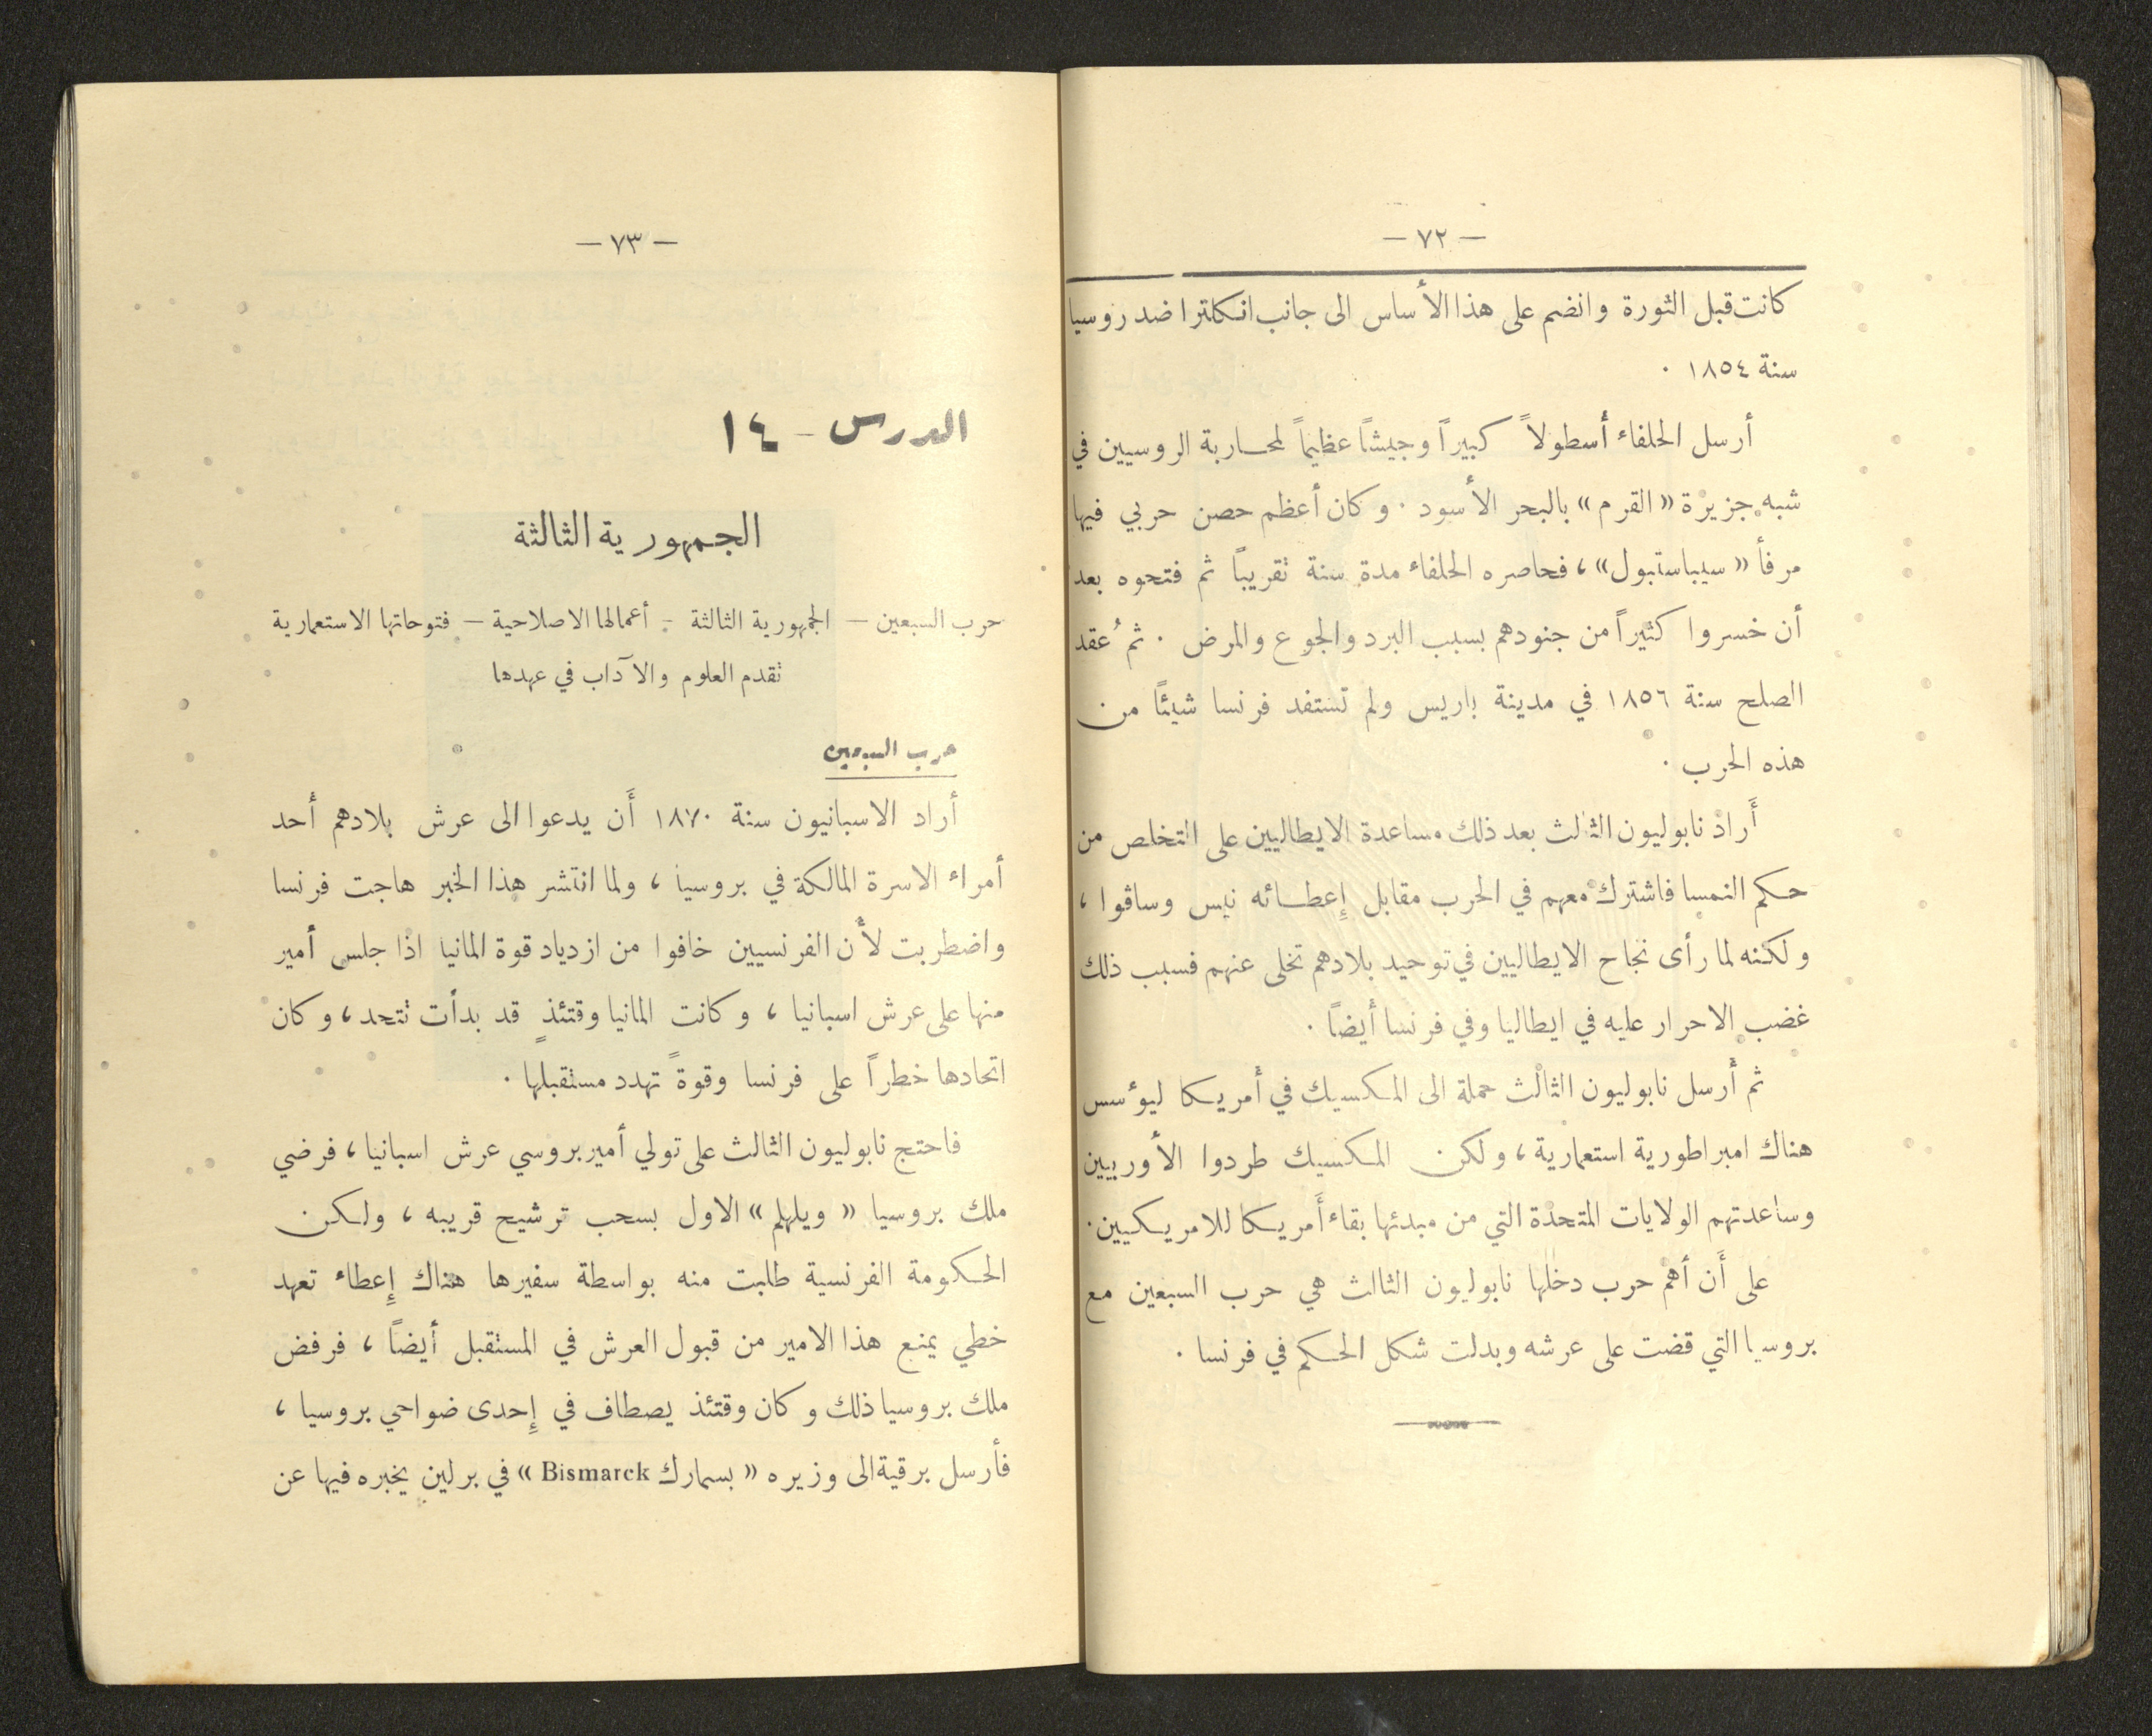 — ٧٢ —
كانت قبل الثورة وانضم على هذا الأساس الى جانب انكلترا ضد روسيا
سنة ١٨٥٤ .
أرسل الحلفاء أسطولاً كبيراً وجيشاً عظيماً لمحاربة الروسيين في
شبه جزيرة « القرم » بالبحر الأسود . وكان أعظم حصن حربي فيها
مرفأ « سيباستبول » ، فحاصره الحلفاء مدة سنة تقريباً ثم فتحوه بعد
أن خسروا كثيراً من جنودهم بسبب البرد والجوع والمرض . ثم عُقد
الصلح سنة ١٨٥٦ في مدينة باريس ولم تستفد فرنسا شيئاً من
هذه الحرب .
أَراد نابوليون الثالث بعد ذلك مساعدة الايطاليين على التخلص من
حكم النمسا فاشترك معهم في الحرب مقابل إِعطائه نيس وساڤوا ،
ولكنه لما رأى نجاح الايطاليين في توحيد بلادهم تخلى عنهم فسبب ذلك
غضب الاحرار عليه في ايطاليا وفي فرنسا أيضاً .
ثم أرسل نابوليون الثالث حملة الى المكسيك في أمريكا ليؤسس
هناك امبراطورية استعمارية ، ولكن المكسيك طردوا الأوربيين
وساعدتهم الولايات المتحدة التي من مبدئها بقاء أَمريكا للامريكيين .
على أَن أهم حرب دخلها نابوليون الثالث هي حرب السبعين مع
بروسيا التي قضت على عرشه وبدلت شكل الحكم في فرنسا .
— ٧٣ —
الدرس - ١٤
الجمهورية الثالثة
حرب السبعين — الجمهورية الثالثة - أعمالها الاصلاحية — فتوحاتها الاستعمارية
تقدم العلوم والآداب في عهدها
حرب السبعين
أراد الاسبانيون سنة ١٨٧٠ أَن يدعوا الى عرش بلادهم أحد
أمراء الاسرة المالكة في بروسيا ، ولما انتشر هذا الخبر هاجت فرنسا
واضطربت لأن الفرنسيين خافوا من ازدياد قوة المانيا اذا جلس أمير
منها على عرش اسبانيا ، وكانت المانيا وقتئذٍ قد بدأت تتحد ، وكان
اتحادها خطراً على فرنسا وقوةً تهدد مستقبلها .
فاحتج نابوليون الثالث على تولي أمير بروسي عرش اسبانيا ، فرضي
ملك بروسيا « ويلهلم » الاول بسحب ترشيح قريبه ، ولكن
الحكومة الفرنسية طلبت منه بواسطة سفيرها هناك إِعطاء تعهد
خطي يمنع هذا الامير من قبول العرش في المستقبل أيضاً ، فرفض
ملك بروسيا ذلك وكان وقتئذ يصطاف في إِحدى ضواحي بروسيا ،
فأرسل برقية الى وزيره « بسمارك Bismarck » في برلين يخبره فيها عن